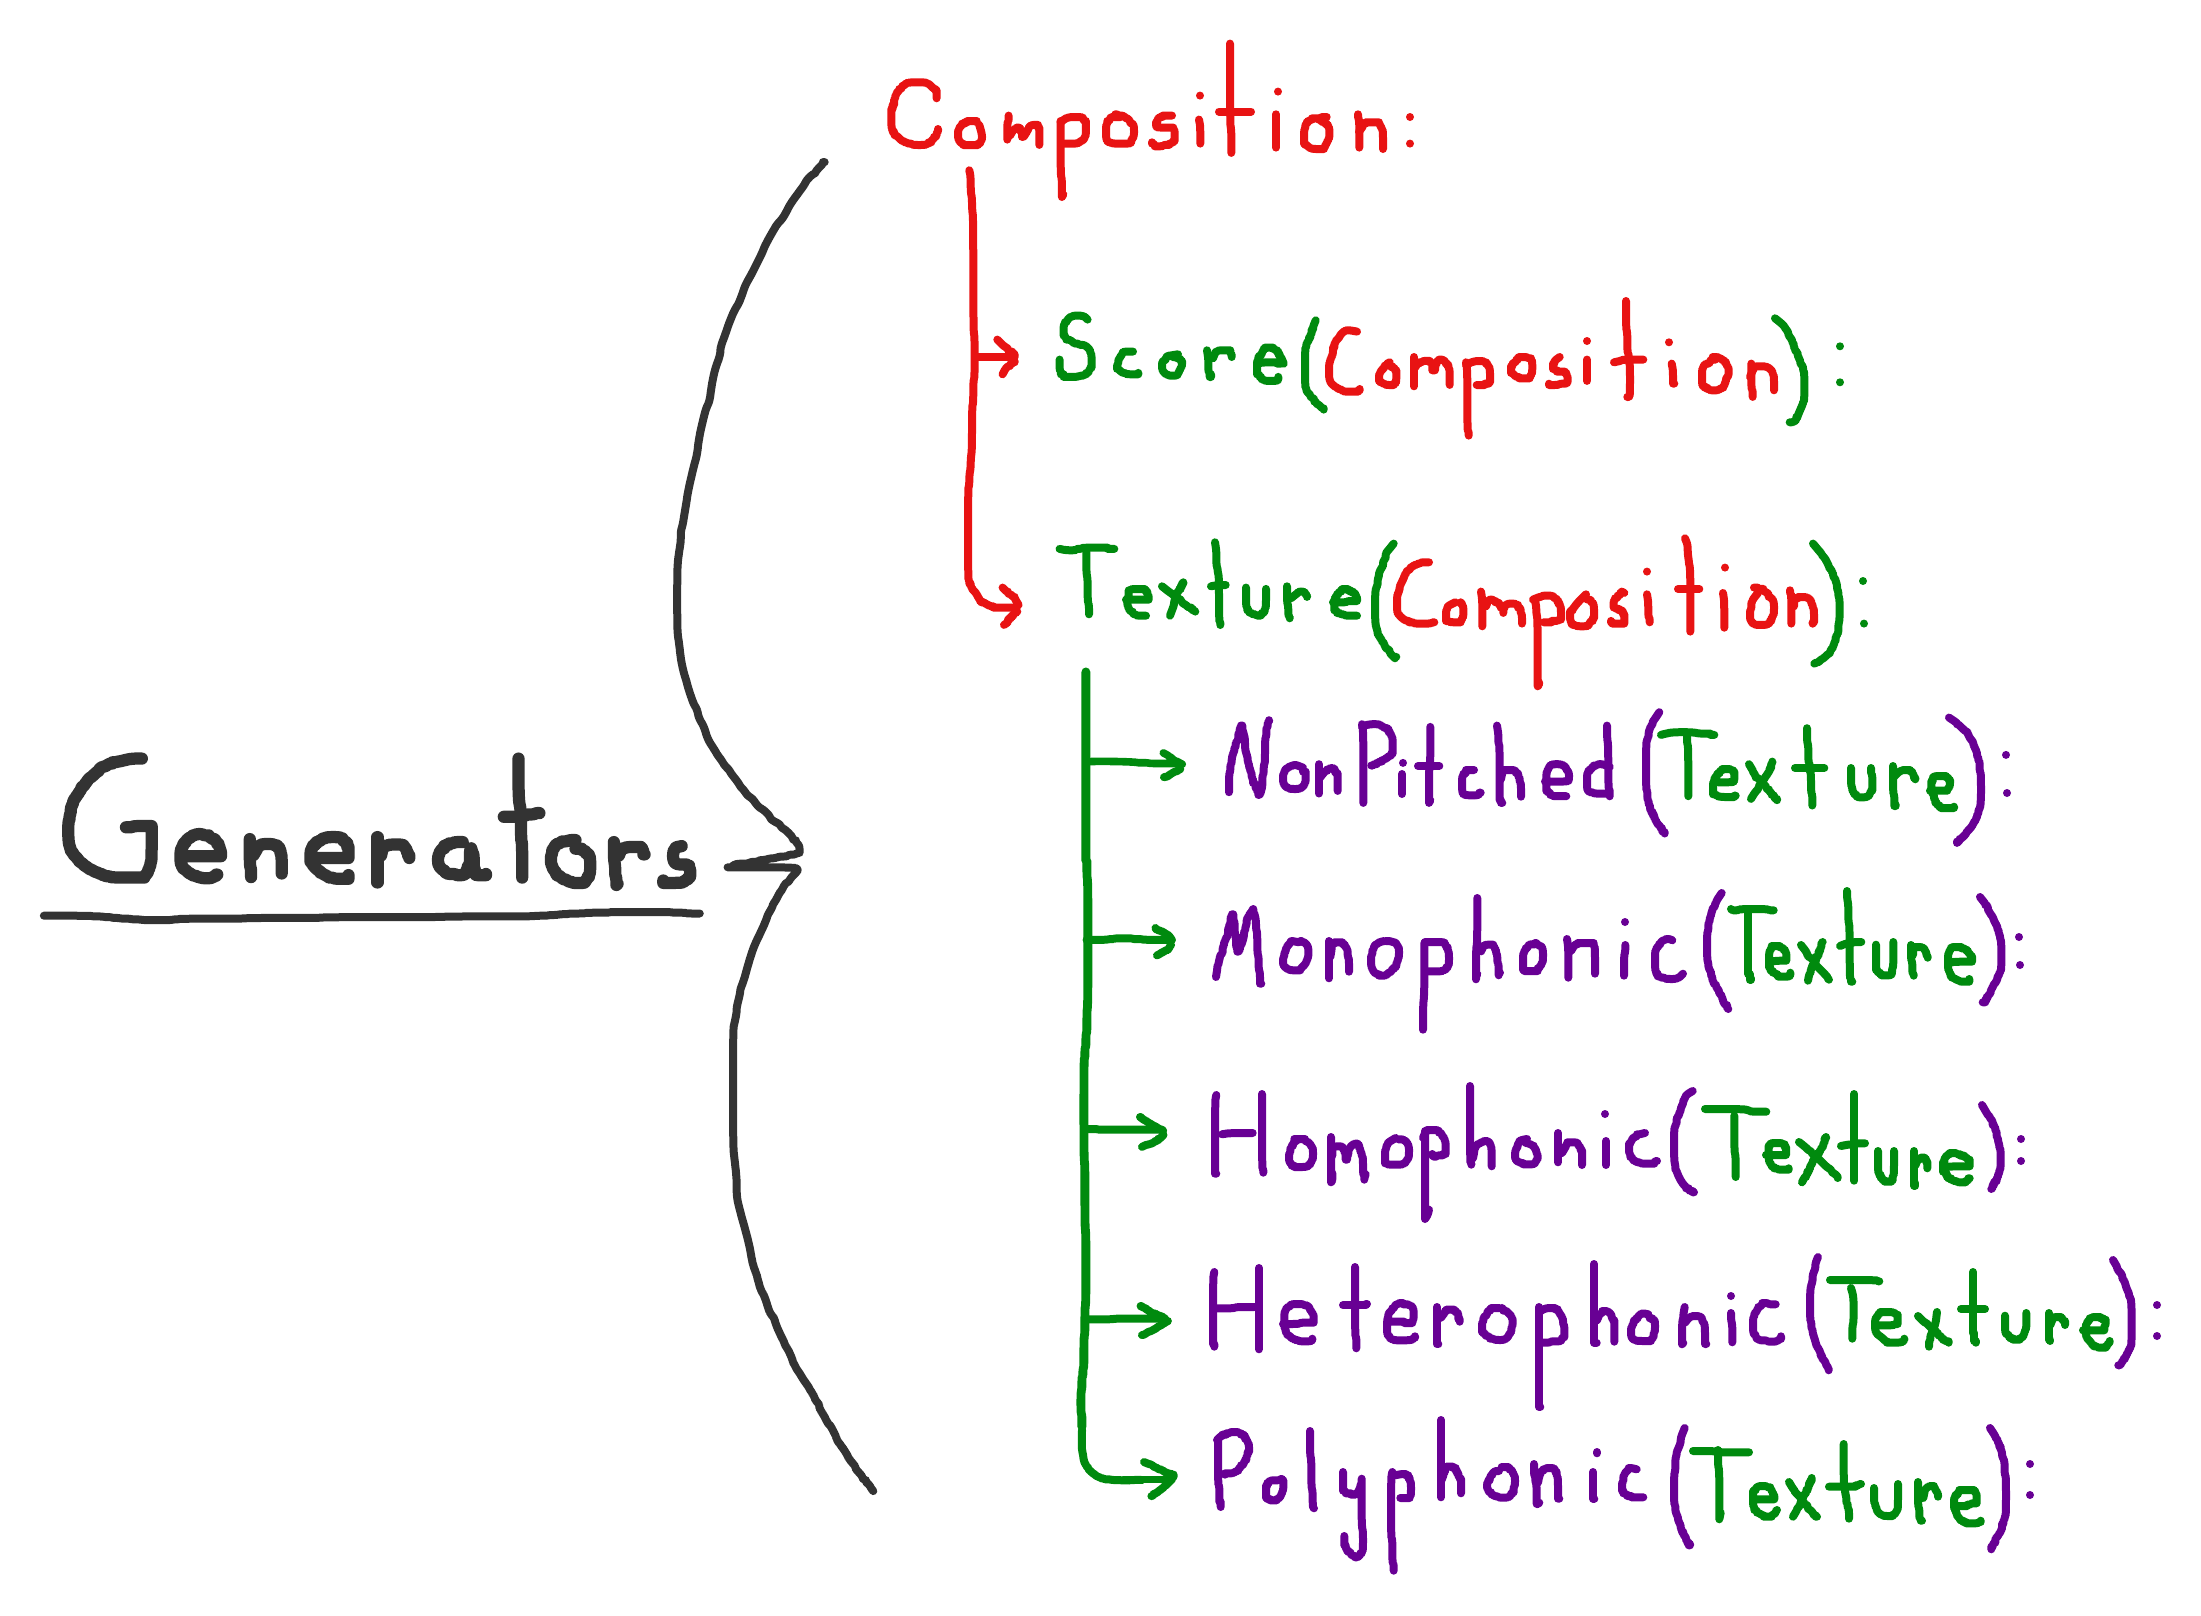 Composition:
Score(Composition):
Texture(Composition):
NonPitched(Texture):
Generators
Monophonic(Texture):
Homophonic(Texture):
Heterophonic(Texture):
Polyphonic(Texture):